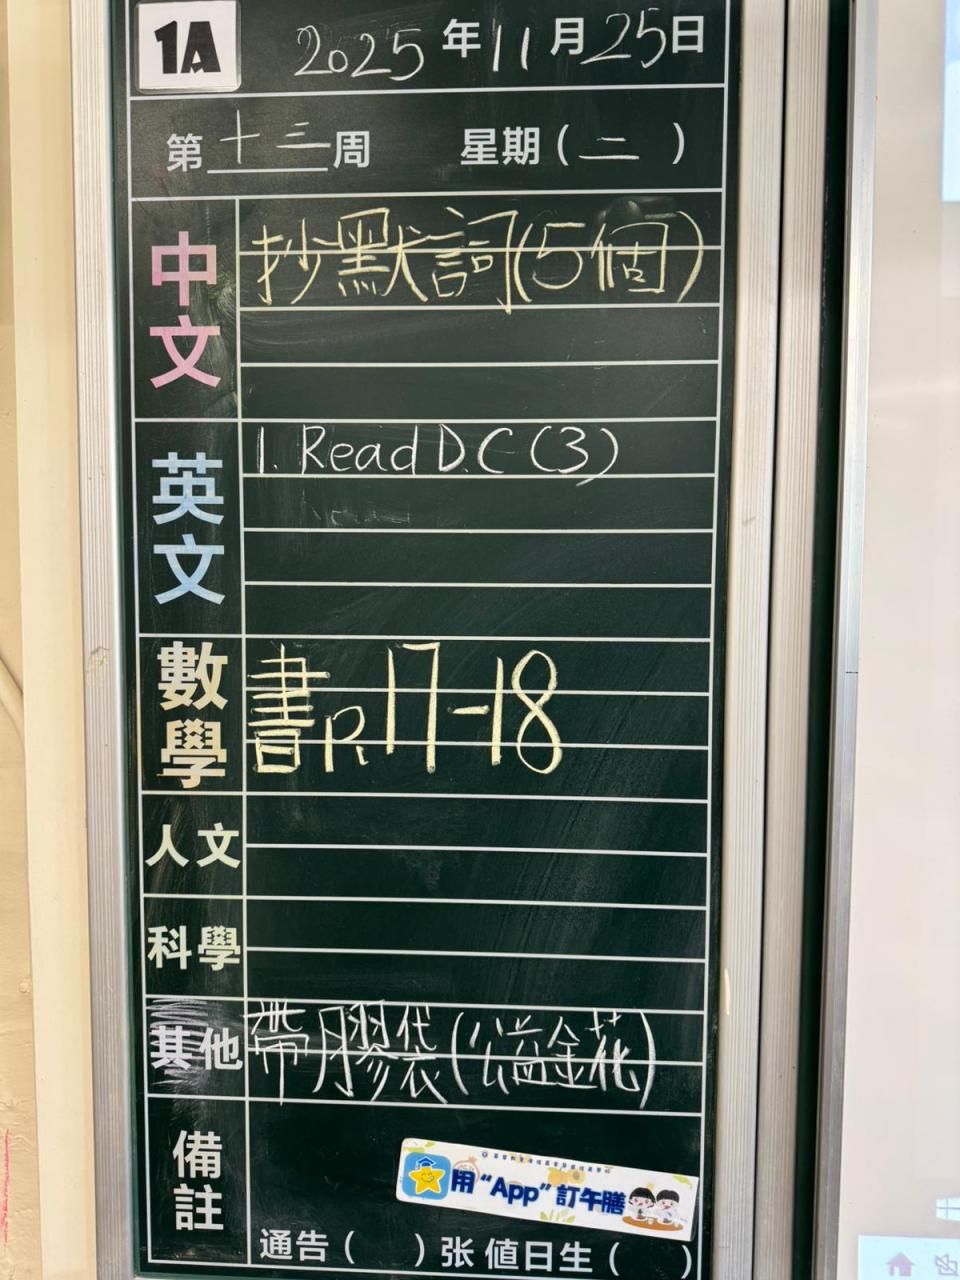 1A
2025年11月25日
第十三周 星期(二)
中文
抄默詞(5個)
英文
1. Read D.C (3)
數學
書P.17-18
人文
科學
其他
帶膠袋(溢金花)
備註
用“App”訂午膳
通告( )张 值日生( )